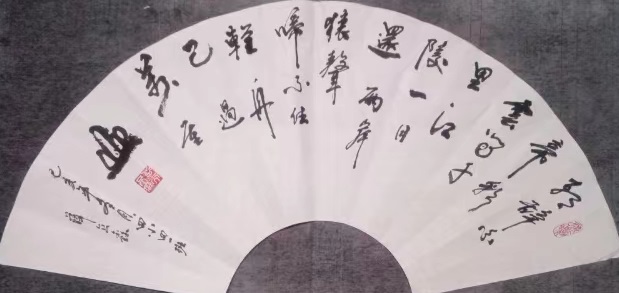 朝辭白
帝彩
雲間千
里江
陵一日
還兩岸
猿聲
啼不住
輕舟
已過
萬重
山
己亥年